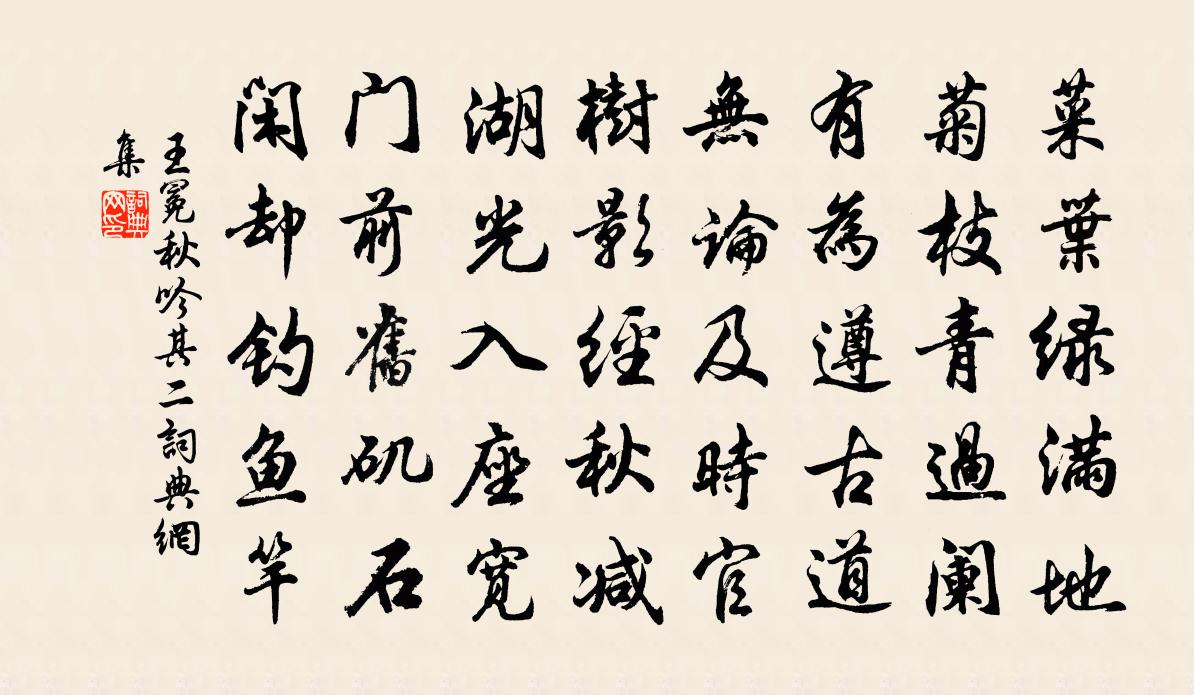 菜葉绿滿地
菊枝青過阑
有為遵古道
無論及時官
樹影經秋减
湖光入座寬
门前舊矶石
閑却钓鱼竿
王冕秋吟其二詞典網
集
詞典
网印